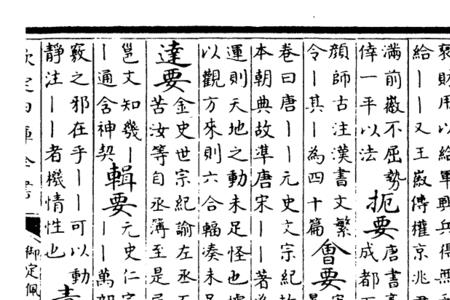 財用以給軍興兵得無
給丨丨又王薇得權京兆尹
滿前嶔不屈勢 扼要 唐書高
倖一平以法 成都
顏師古注漢書文繁 會要
令丨其丨為四十篇
卷曰唐丨丨元史文宗紀
本朝典故準唐宋丨丨著為
運則天地之動未足怪也
以觀方來則六合輻湊未足
達要 金史世宗紀諭左丞
苦汝等自丞簿至是
邕文知幾丨丨 輯要 元史仁
丨通含神契 丨丨萬
竅之邪在乎丨丨可以動
靜注丨丨者機情性也
欽定四庫全書
御定佩